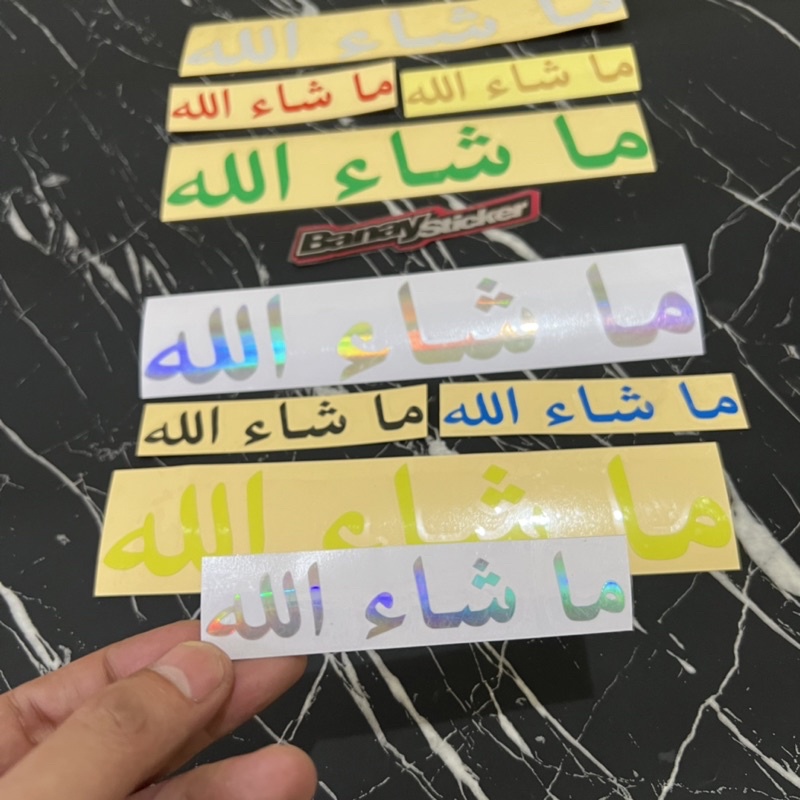 ما شاء الله
ما شاء الله
ما شاء الله
ما شاء الله
BanaySticker
ما شاء الله
ما شاء الله
ما شاء الله
ما شاء الله
ما شاء الله